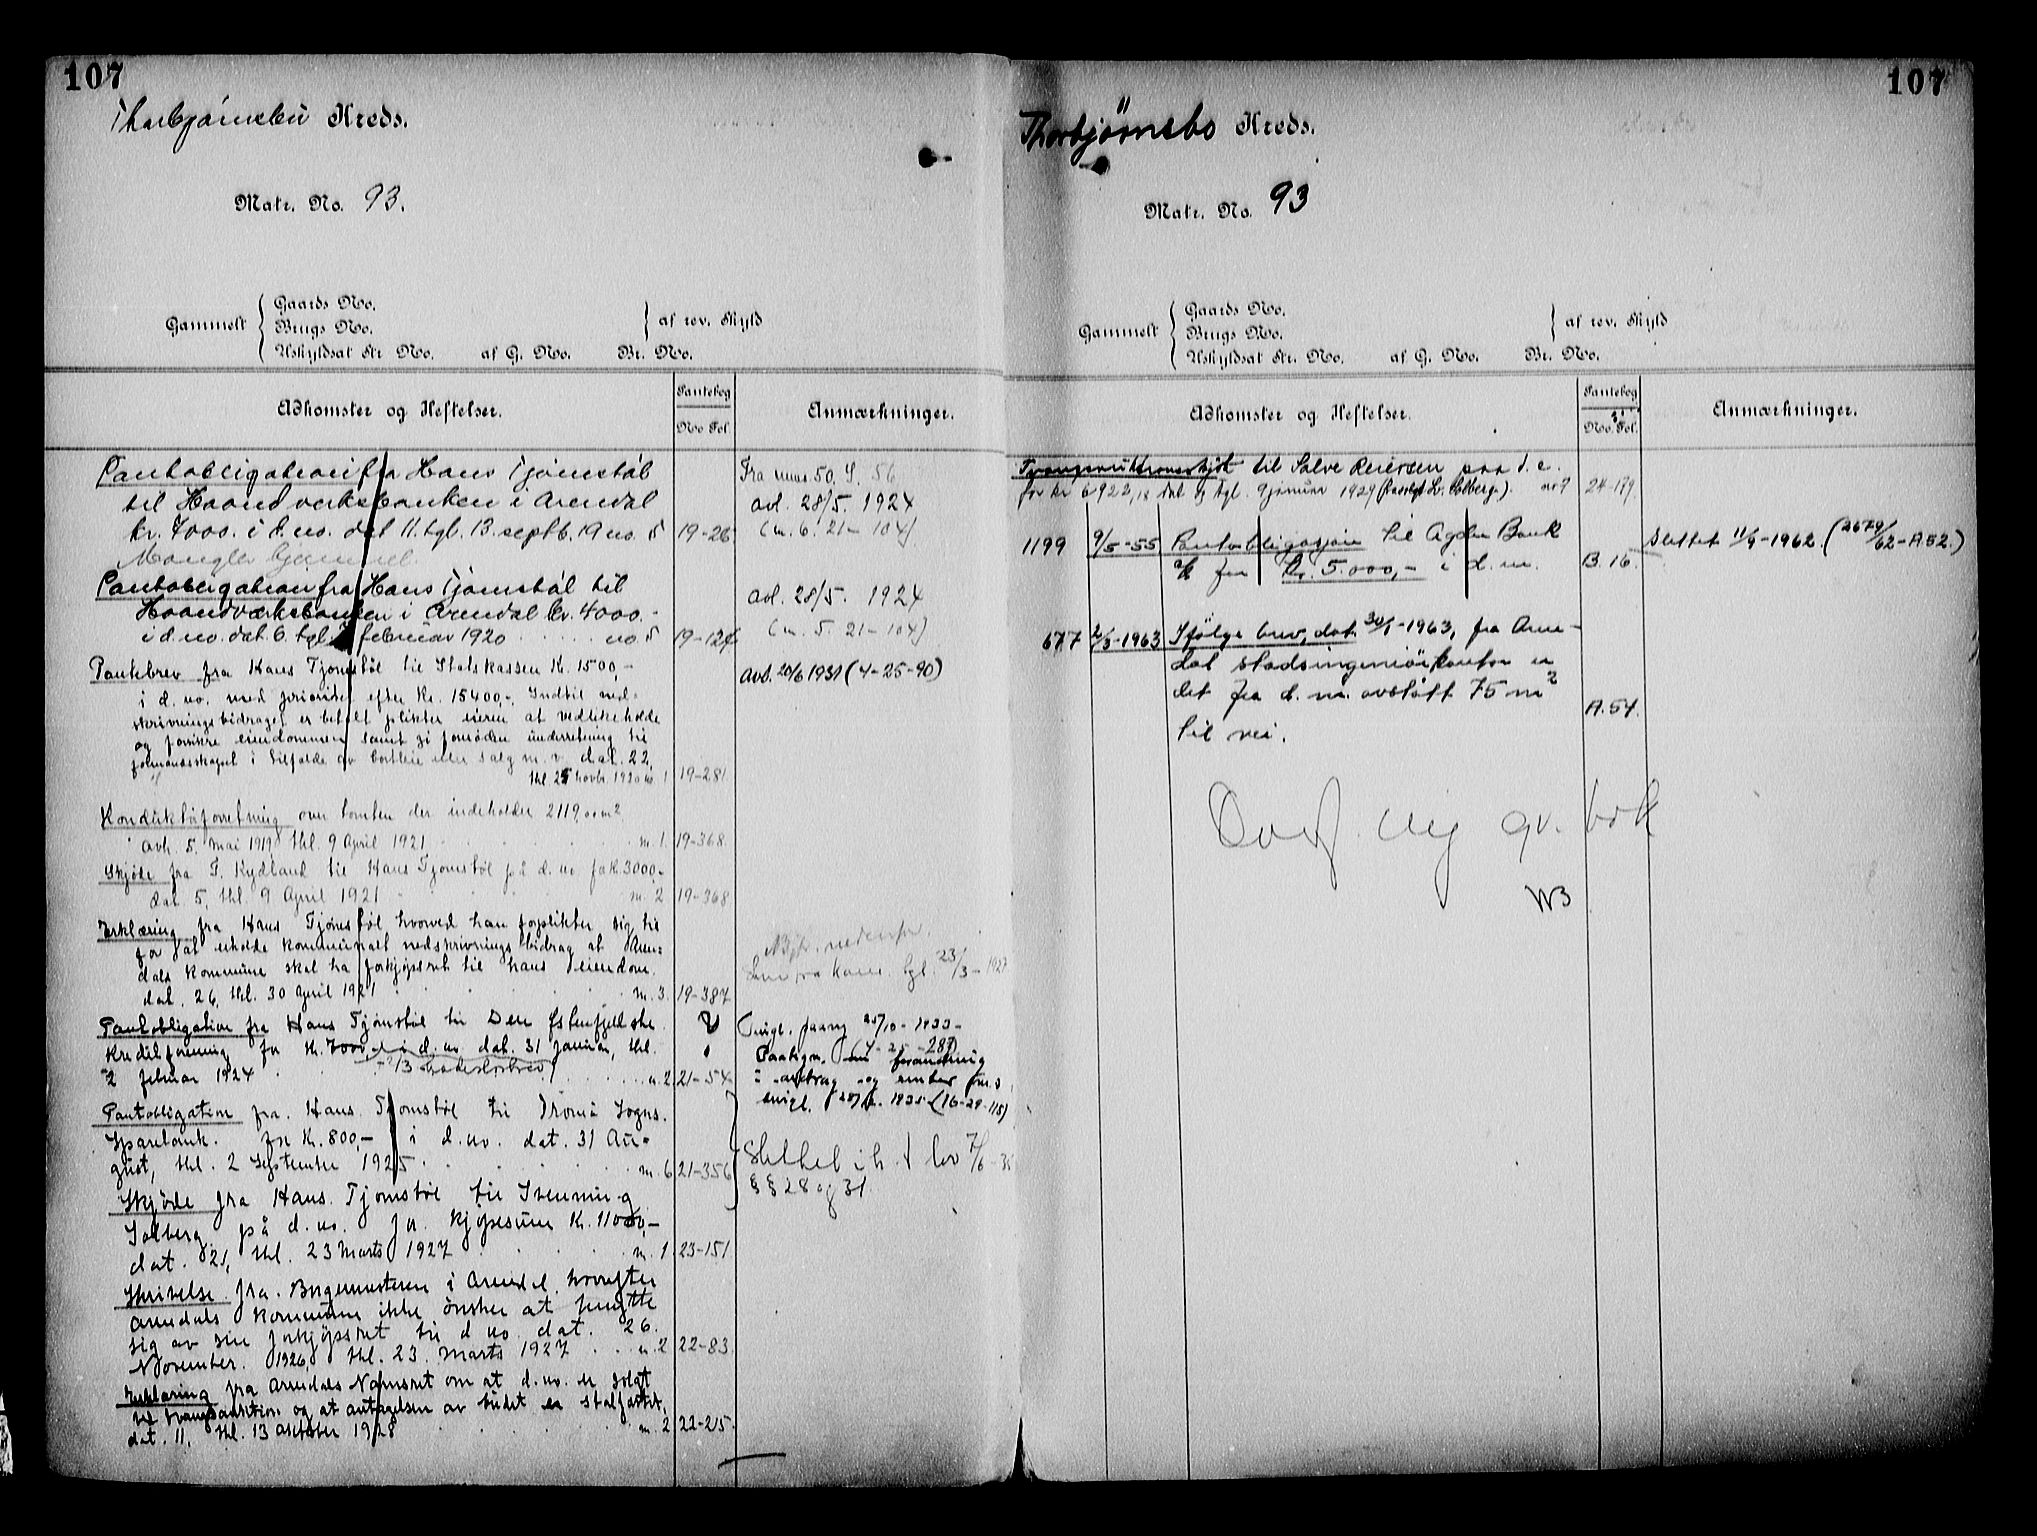 107
Thorbjørnsbu Kreds.
Matr. No. 93.
Gammelt
Gaards No.
Brugs No.
Uskyldsat Str. No. af G. No. Br. No.
af rev. Skyld
Adkomster og Heftelser.
Pantebog
No Fol.
Anmærkninger.
Pantobligation fra Hans Tjømstøl
til Haandverksbanken i Arendal
kr. 7000. i d. no. dat 11. tgl. 13. septb. 19 no. 5 19-26
Mangler
Fra
avl. 28/5. 1924
(m. 6. 21-104)
Pantobligation fra Hans Tjømstøl til
Haandværksbanken i Arendal kr. 4000.-
i d. no. dat. 6. tgl. 7 februar 1920 no. 5 19-124
avl. 28/5. 1924
(m. 5. 21-104)
Pantebrev fra Hans Tjomstøl til Statskassen Kr. 1500,-
i d. no. med prioritet efter Kr. 15400,-. Indtil ned-
skrivningsbidraget er betalt plikter eieren at vedlikeholde
og forsikre eiendommen samt gi fornøden underretning til
formandsskapet i tilfælde av bortleie eller salg m. v. dat. 22,
thl 25 novbr. 1920 m. 1 19-281
avl. 20/6 1931 (4-25-90)
Konduktørforretning over tomten der indeholder 2119,00 m2
avh. 5. mai 1919 thl. 9 April 1921 m. 1. 19-368.
Skjøde fra T. Rydland til Hans Tjomstøl på d. no for k. 3000,-
dat. 5, thl. 9 April 1921 m. 2 19-368
Erklæring fra Hans Tjomstøl hvorved han forplikter sig til
for at erholde kommunalt nedskrivningsbidrag at Aren-
dals kommune skal ha forkjøpsret til hans eiendom.
dat. 26, thl. 30 April 1921 m. 3. 19-387
nedenfor.
tgl. 23/3-1927
Pantobligation fra Hans Tjomstøl til Den Østenfjeldske
Kreditforening for kr. 7000,- i d. no dat. 31 Januar, thl.
2 februar 1924 m. 2. 21-54
25/10-1933-
(4-25-287)
Paategn. om forandring
i avdrag og renter m.
1935-(16-29-115)
Pantobligation fra Hans Tjomstøl til Tromø Sogns
Sparebank. for kr. 800,- i d. no. dat. 31 Au-
gust, thl. 2 September 1925 m. 6 21-356
Slettet i h. t. lov 7/6-35
§§ 28 og 31.
Skjøde fra Hans Tjomstøl til Stenning
Solberg på d. no. for kjøpesum kr. 11000,-
dat. 21, thl. 23 Marts 1927 m. 1 23-151
Skrivelse fra Borgermesteren i Arendal hvorefter
Arendals Kommune ikke ønsker at benytte
sig av sin forkjøpsret til d no. dat. 26.
November. 1926, thl. 23. Marts 1927 m. 2 22-83
Erklæring fra Arendals Namsret om at d. no. er solgt
ved tvangsauktion og at antagelsen av budet er stadfæstet.
dat. 11. thl. 13 oktober 1928 m. 2 22-215.
107
Thorbjørnsbo Kreds.
Matr. No. 93
Gammelt
Gaards No.
Brugs No.
Uskyldsat Str. No. af G. No. Br. No.
af rev. Skyld
Adkomster og Heftelser.
Pantebog
No. Fol.
Anmærkninger.
til Salve Reiersen paa d. e.
for kr 6922,18 dat og tgl. 9 januar 1929 no 7 24-179.
1199 9/5-55 Pantobligasjon til Agder Bank
A/S for Kr. 5.000,- i d. m. B. 16.
Slettet 11/9-1962. (2679/62-A52.)
677 2/3-1963 Ifølge brev, dat. 30/1-1963, fra Aren-
dal stadsingeniørkontor er
det fra d. m. avstått 75 m2
til vei. A. 54.
Overf. ny gr. bok